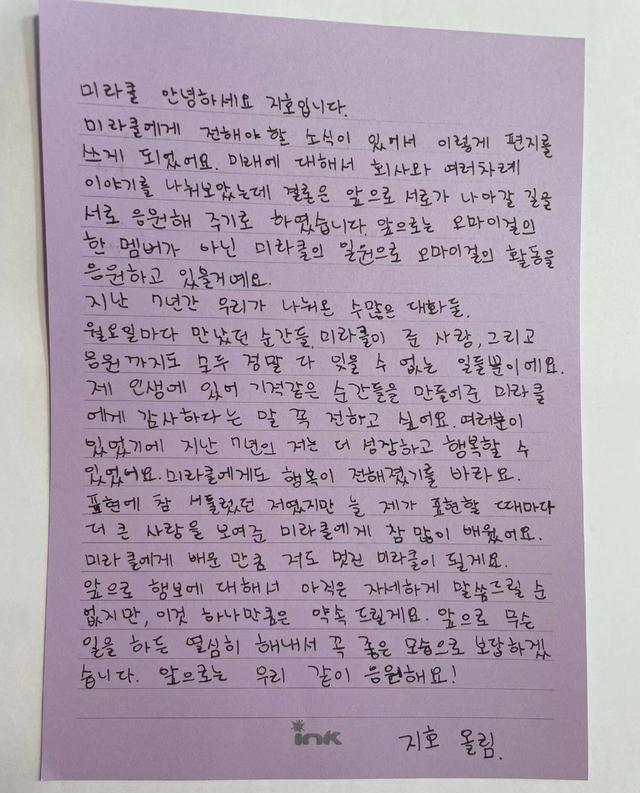 미라클 안녕하세요 지호입니다.
미라클에게 전해야할 소식이 있어서 이렇게 편지를
쓰게 되었어요. 미래에 대해서 회사와 여러차례
이야기를 나눠보았는데 결론은 앞으로 서로가 나아갈 길을
서로 응원해 주기로 하였습니다. 앞으로는 오마이걸의
한 멤버가 아닌 미라클의 일원으로 오마이걸의 활동을
응원하고 있을거예요.
지난 7년간 우리가 나눠온 수많은 대화들,
월요일마다 만났던 순간들, 미라클이 준 사랑, 그리고
응원까지도 모두 정말 다 잊을 수 없는 일들뿐이에요.
제 인생에 있어 기적같은 순간들을 만들어준 미라클
에게 감사하다는 말 꼭 전하고 싶어요. 여러분이
있었기에 지난 7년의 저는 더 성장하고 행복할 수
있었어요. 미라클에게도 행복이 전해졌기를 바라요.
표현에 참 서툴렀던 저였지만 늘 제가 표현할 때마다
더 큰 사랑을 보여준 미라클에게 참 많이 배웠어요.
미라클에게 배운 만큼 저도 멋진 미라클이 될게요.
앞으로 행보에 대해서 아직은 자세하게 말씀드릴 순
없지만, 이것 하나만큼은 약속 드릴게요. 앞으로 무슨
일을 하든 열심히 해내서 꼭 좋은 모습으로 보답하겠
습니다. 앞으로는 우리 같이 응원해요!
ink
지호 올림.